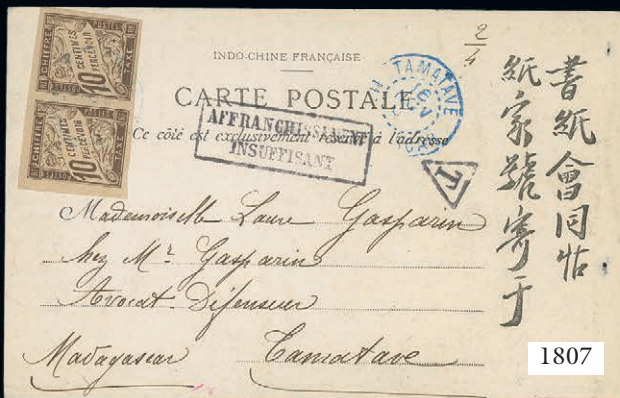 CHIFFRE TAXE
POSTES
10
CENTIMES
A PERCEVOIR
CHIFFRE TAXE
POSTES
10
CENTIMES
A PERCEVOIR
INDO-CHINE FRANÇAISE
CARTE POSTALE
Ce côté est exclusivement réservé à l'adresse
AFFRANCHISSEMENT
INSUFFISANT
TAMATAVE
16
T
2/4
Mademoiselle Laure Gasparin
chez Mr Gasparin
Avocat-Défenseur
Madagascar Tamatave
書紙會同
紙家號寄于
1807